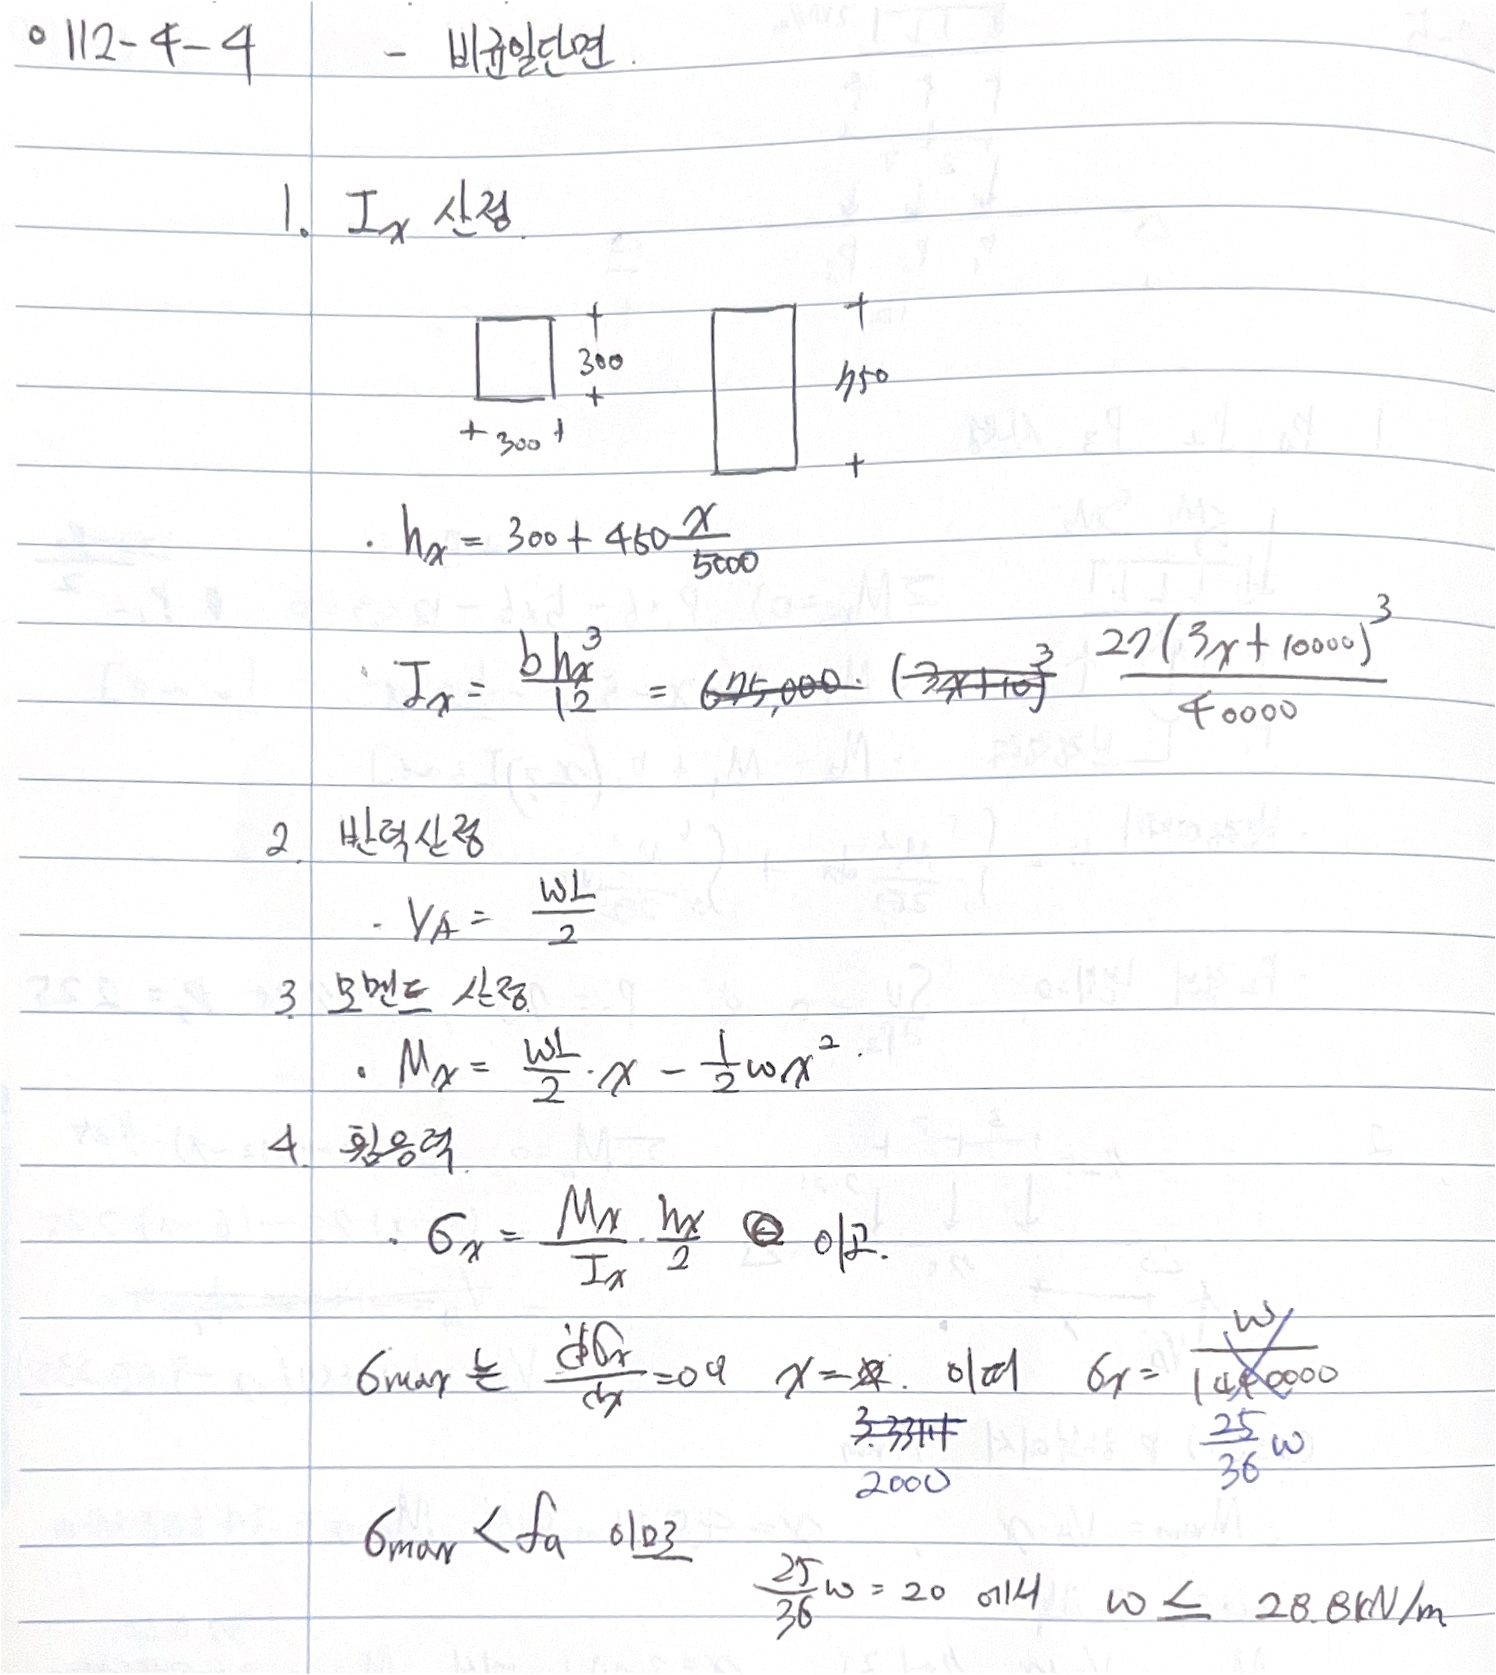 ° 112-4-4 - 비균일단면.
1. Ix 산정.
300 750
300
· hx = 300 + 450 x/5000
· Ix = bhx³/12 = 27(3x+10000)³/40000
2. 반력산정
· VA = wL/2
3. 모멘트 산정.
· Mx = wL/2 · x - 1/2 wx².
4. 휨응력.
· σx = Mx/Ix · hx/2 이고.
σmax 는 dσx/dx = 0에 x = 2000 이때 σx = 25/36 w
σmax < fa 이므로
25/36 w = 20 에서 w ≤ 28.8kN/m